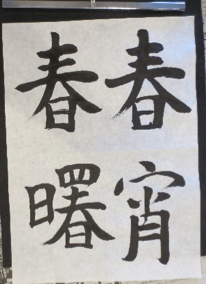 春宵
春曙